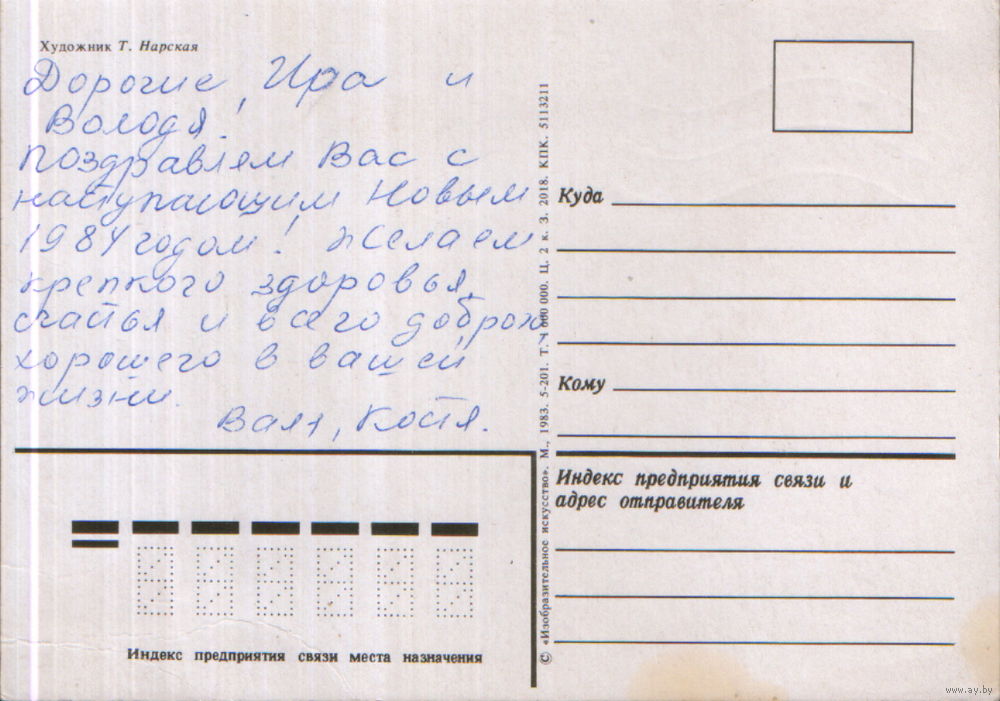 Художник Т. Нарская
Дорогие, Ира и
Володя!
Поздравляем Вас с
наступающим Новым
1984 годом! Желаем
крепкого здоровья,
счастья и всего доброго
хорошего в вашей
жизни.
Валя, Костя.
Индекс предприятия связи места назначения
© «Изобразительное искусство». М., 1983. 5-201. Т. Ч 000 000. Ц. 2 к. З. 2018. КПК. 5113211
Куда
Кому
Индекс предприятия связи и
адрес отправителя
www.ay.by